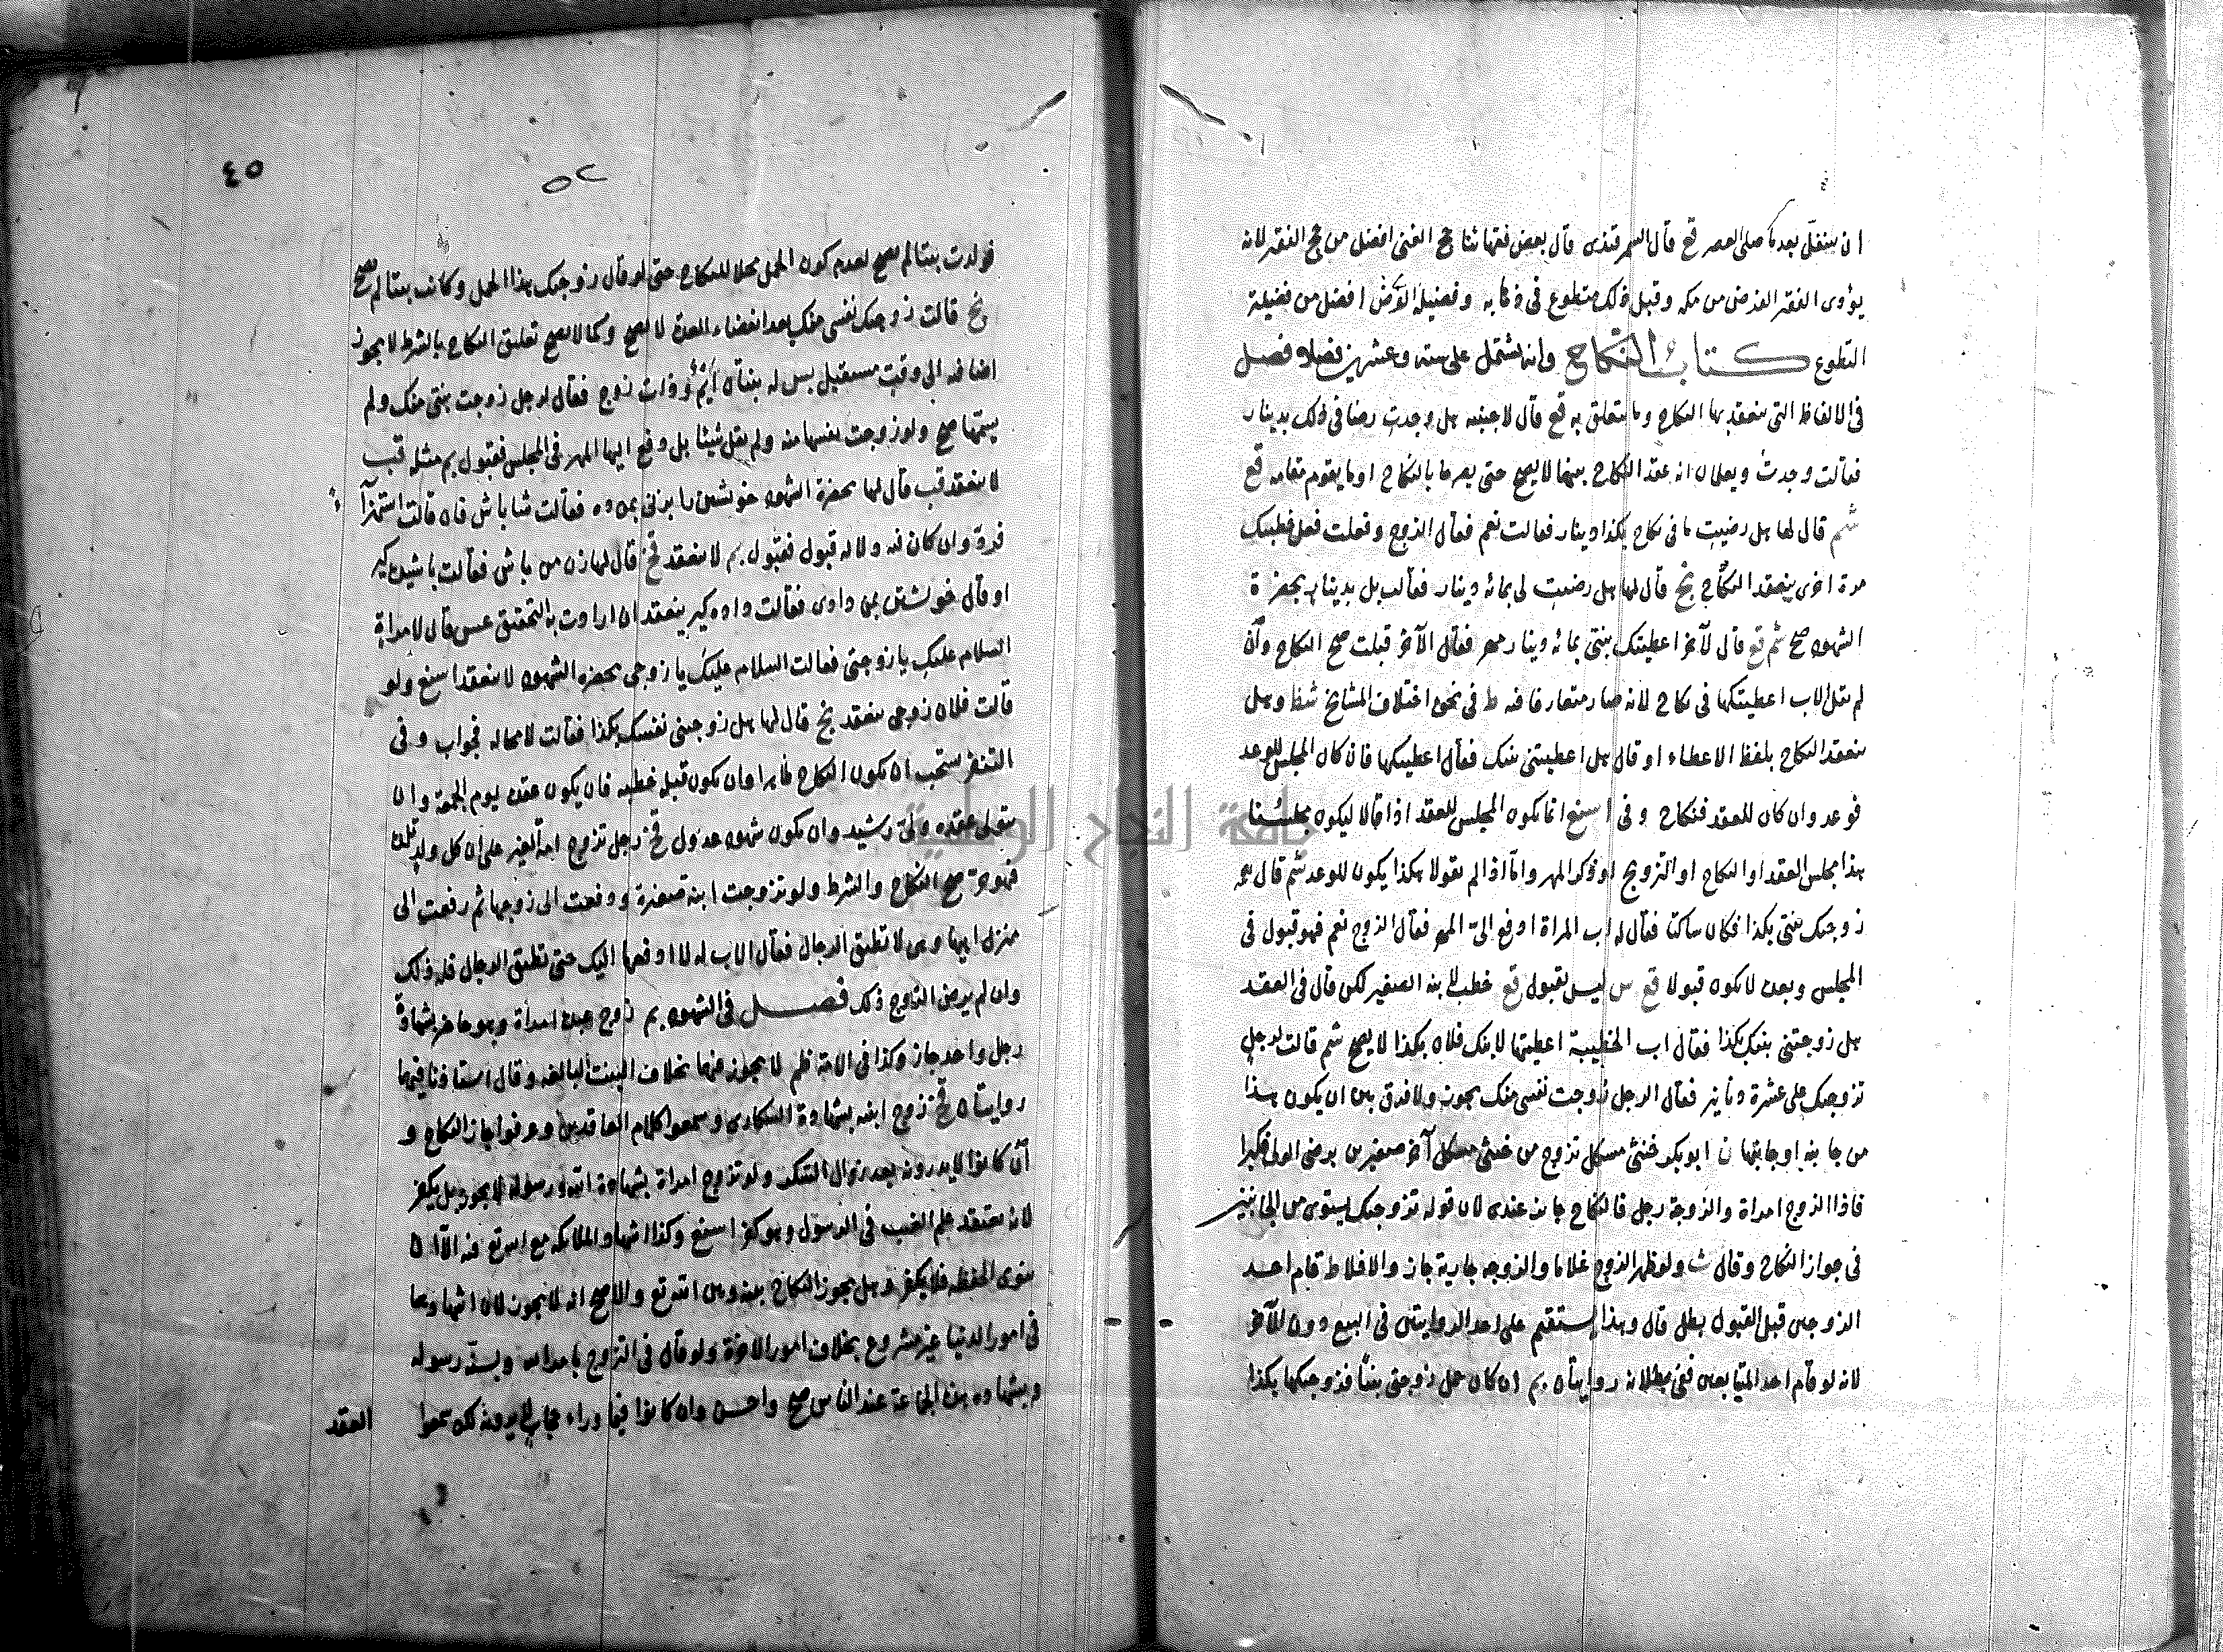 ان يتنفل بعدما صلى العصر قع قال السمرقندى قال بعض فقهائنا حج الغنى افضل من حج الفقير لانه
يؤدى الفقير الفرض من مكه وقبل ذلك متطوع فى ذهابه وفضيلة الفرض افضل من فضيلة
التطوع كتاب النكاح وانه يشتمل على سته وعشرين فصلا فصل
فى الالفاظ التى ينعقد بها النكاح وما يتعلق به قع قال لاجنبيه هل وجدت رضا فى ذلك بدينار
فقالت وجدت ويعلمان انه عقد النكاح بينهما لا يصح حتى يصرحا بالنكاح او ما يقوم مقامه قع
شم قال لها هل رضيت ما فى نكاح بكذا دينار فقالت نعم فقال الزوج وقعلت فعل
مرة اخرى ينعقد النكاح بخ قال لها هل رضيت لى بمائه دينار فقالت بل بدينار بحضرة
الشهود صح شم قع قال لآخر اعطيتك بنتى بمائه دينار مهر فقال الآخر قبلت صح النكاح وان
لم يقل الاب اعطيتكها فى نكاح لانه صار متعارفا فيه ط فى نحوه اختلاف المشايخ شظ وهل
ينعقد النكاح بلفظ الاعطاء او قال هل اعطيتنى بنتك فقال اعطيتكها فان كان المجلس للوعد
فوعد وان كان للعقد فنكاح وفى اسنع انما يكون المجلس للعقد اذا قالا ليكون مجلسنا
هذا مجلس العقد او النكاح او التزويج او ذكر المهر واما اذا لم يقولا هكذا يكون للوعد شم قال
زوجتك بنتى بكذا فكان ساكتا فقال له اب المراة ادفع الىّ المهر فقال الزوج نعم فهو قبول فى
المجلس وبعده لا يكون قبولا قع س ليس بقبول قع خطب لابنه الصغير لكن قال فى العقد
هل زوجتنى بنتك بكذا فقال اب الخطيبة اعطيتها لابنك فلان بكذا لا يصح شم قالت لرجل
تزوجتك على عشرة دنانير فقال الرجل زوجت نفسى منك يجوز ولا فرق بين ان يكون هذا
من جانبه او جانبها ن ابوبكر خنثى مشكل تزوج من خنثى مشكل آخر صغيرين برضى الولى فكبرا
فاذا الزوج امراة والزوجة رجل فالنكاح جائز عندى لان قوله تزوجتك يستوى من الجانبين
فى جواز النكاح وقال ث ولو ظهر الزوج غلاما والزوجه جارية جاز والا فلا ط قام احد
الزوجين قبل القبول بطل قال وهذا يستقيم على احد الروايتين فى البيع دون الآخر
لانه لو قام احد المتبايعين ففى بطلانه روايتان بم ان كان حمل زوجتى بنتا فزوجتكها بكذا
٤٥
٥٢
فولدت بنتا لم يصح لعدم كون الحمل محلا للنكاح حتى لو قال زوجتك هذا الحمل وكانت بنتا لم يصح
بخ قالت زوجتك نفسى منك بعد انقضاء العدة لا يصح وكما لا يصح تعليق النكاح بالشرط لا يجوز
اضافته الى وقت مستقبل بس له بنتان ايّم وذات زوج فقال لرجل زوجت بنتى منك ولم
يسمّها صح ولو زوجت نفسها منه ولم يقل شيئا بل دفع اليها المهر فى المجلس فقبول بم مثله قب
لا ينعقد قب قال لها بحضرة الشهود خويشتن را بزنى بمن ده فقالت شاباش فان قالت استهزآءً
فردّ وان كان فيه دلاله قبول فقبول بم لا ينعقد قخ قال لها زن من باش فقالت باشيده كير
او قال خويشتن بمن دادى فقالت داده كير ينعقد ان ارادت به التحقيق عس قال لامراة
السلام عليك يا زوجتى فقالت السلام عليك يا زوجى بحضره الشهود لا ينعقد اسنع ولو
قالت فلان زوجى ينعقد بخ قال لها هل زوجتنى نفسك بكذا فقالت لا محاله فجواب وفى
يستحب ان يكون النكاح ظاهرا وان يكون قبله خطبه فان يكون عقده يوم الجمعة وان
يتولى عقده ولىّ رشيد وان يكون شهود عدول قخ رجل تزوج امة الغير على ان كل ولد تلده
فهو حرّ صح النكاح والشرط ولو تزوجت ابنه صغيرة ودفعت الى زوجها ثم رفعت الى
منزل ابيها وهى لا تطيق الرجال فقال الاب له لا ادفعها اليك حتى تطيق الرجال فله ذلك
وان لم يرض الزوج ذلك فصل فى الشهود بم زوج عبده امراة وهو حاضر بشهادة
رجل واحد جاز وكذا فى الامة ظم لا يجوز فيهما بخلاف البنت البالغه وقال استاذنا فيهما
روايتان قخ زوج ابنه بشهادة السكارى وسمعوا كلام العاقدين وعرفوا جاز النكاح و
ان كانوا لا يدرونه بعد زوال السّكر ولو تزوج امراة بشهادة الله ورسوله لا يجوز بل يكفر
لانه يعتقد علم الغيب فى الرسول وهو كفر اسنع وكذا اشهاد الملائكه مع الله تع فيه الا ان
ينوى الحفظة فلا يكفر وهل يجوز النكاح بينه وبين الله تع والاصح انه لا يجوز لان اشهادها
فى امور الدنيا غير مشروع بخلاف امور الاخرة ولو قال فى التزوج بامر الله وبسنّة رسوله
وبشهاده هذه الجماعة عند الناس صح واحسن وان كانوا فيما وراء حجاب لا يرونه لكن سمعوا
العقد
جامعة النجاح الوطنية